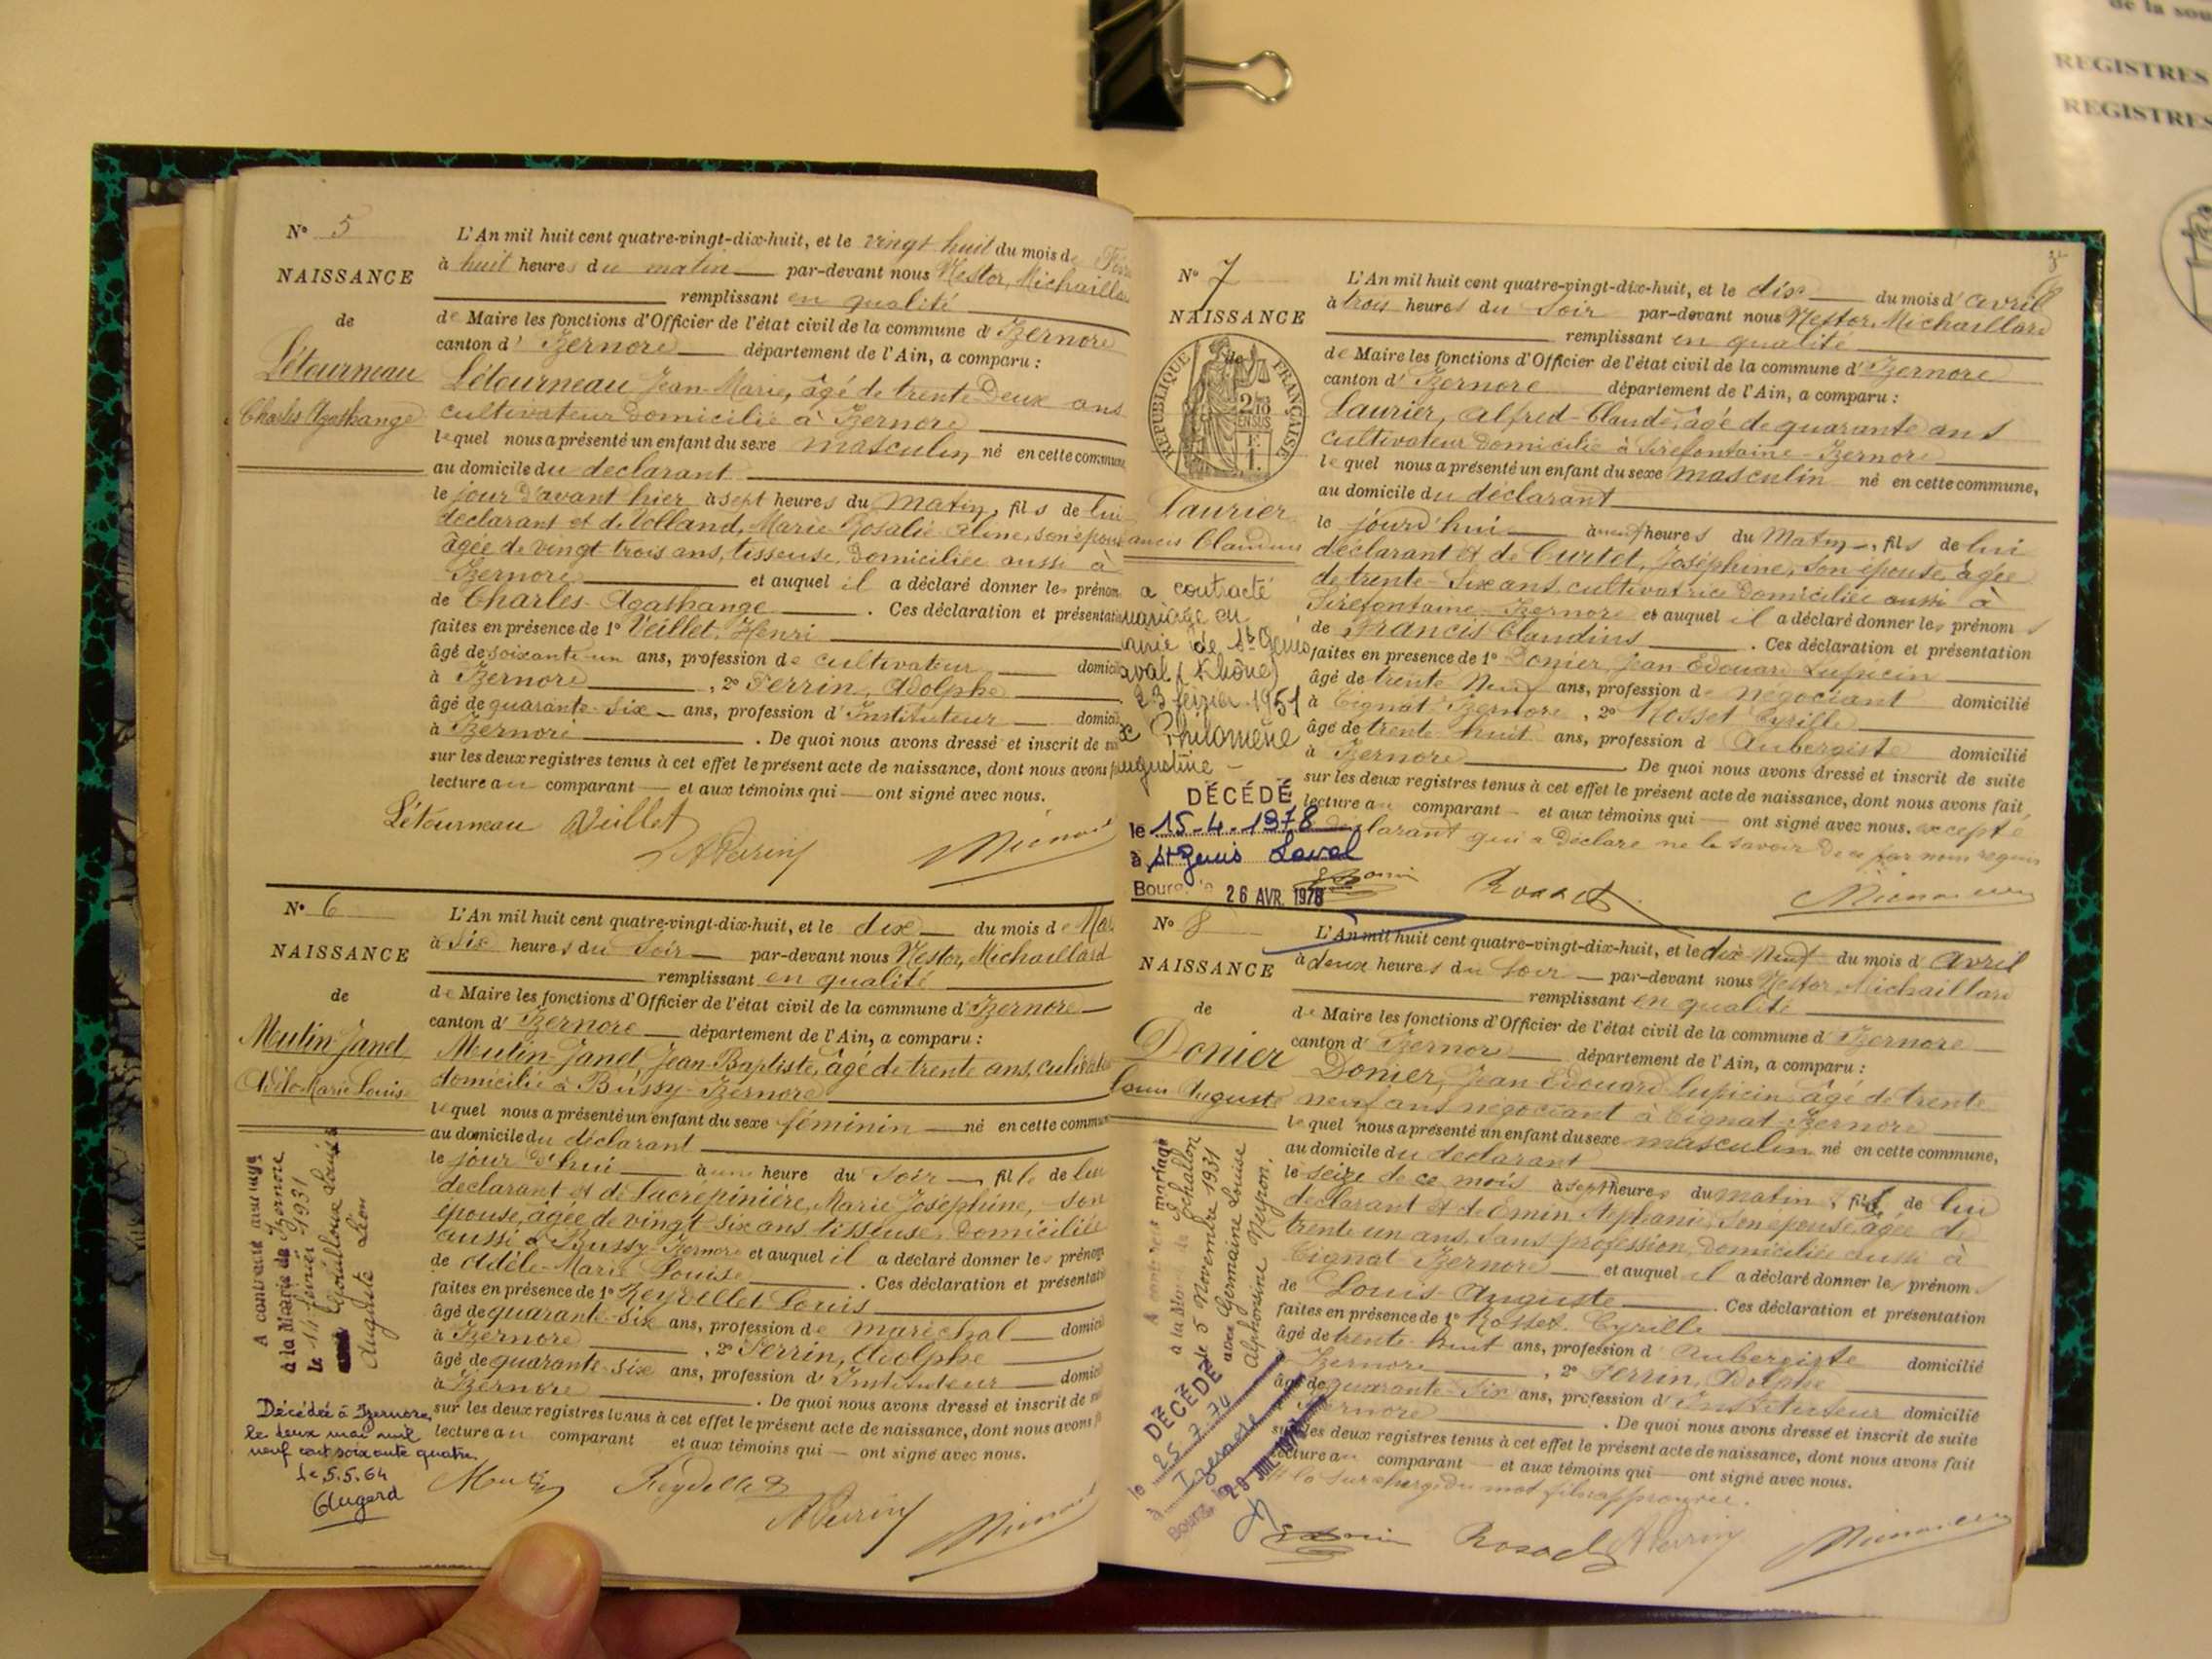 de la sou
REGISTRES
REGISTRES
N° 5
NAISSANCE
de
Létourneau
Charles Agathange
L'An mil huit cent quatre-vingt-dix-huit, et le vingt huit du mois de
à huit heures du matin par-devant nous Nestor, Michaillard
remplissant en qualité
de Maire les fonctions d'Officier de l'état civil de la commune d'Izernore
canton d'Izernore département de l'Ain, a comparu :
Létourneau Jean-Marie, âgé de trente deux ans
cultivateur domicilié à Izernore
lequel nous a présenté un enfant du sexe masculin né en cette commune,
au domicile du déclarant
le jour d'avant hier à sept heures du matin, fils de lui
déclarant et de Volland, Marie-Rosalie-Aline, son épouse
âgée de vingt trois ans, tisseuse, domiciliée aussi à
Izernore et auquel il a déclaré donner les prénom
de Charles-Agathange . Ces déclaration et présentation
faites en présence de 1° Veillet, Henri
âgé de soixante-un ans, profession de cultivateur domicilié
à Izernore , 2° Perrin, Adolphe
âgé de quarante-six ans, profession d'Instituteur domicilié
à Izernore . De quoi nous avons dressé et inscrit de
sur les deux registres tenus à cet effet le présent acte de naissance, dont nous avons
lecture au comparant et aux témoins qui ont signé avec nous.
Létourneau Veillet
APerrin
N° 6
NAISSANCE
de
Mutin-Janet
Adèle-Marie-Louise
L'An mil huit cent quatre-vingt-dix-huit, et le dix du mois de
à six heures du soir par-devant nous Nestor, Michaillard
remplissant en qualité
de Maire les fonctions d'Officier de l'état civil de la commune d'Izernore
canton d'Izernore département de l'Ain, a comparu :
Mutin-Janet, Jean-Baptiste, âgé de trente ans, cultivateur
domicilié à Bussy-Izernore
lequel nous a présenté un enfant du sexe féminin né en cette commune
au domicile du déclarant
le jour d'hui à une heure du soir fille de lui
déclarant et de Lacrépinière, Marie Joséphine, son
épouse, âgée de vingt-six ans tisseuse, domiciliée
aussi à Bussy-Izernore et auquel il a déclaré donner les prénom
de Adèle-Marie Louise . Ces déclaration et présentation
faites en présence de 1° Reydellet Louis
âgé de quarante-six ans, profession de maréchal
à Izernore , 2° Perrin, Adolphe
âgé de quarante-six ans, profession d'Instituteur
à Izernore . De quoi nous avons dressé et inscrit de
sur les deux registres tenus à cet effet le présent acte de naissance, dont nous avons
lecture au comparant et aux témoins qui ont signé avec nous.
A contracté mariage
à la Mairie de Izernore
le 14 février 1931
Louis
Auguste Léon
Décédée à Izernore,
le deux mai mil
neuf cent soixante quatre.
Le 5.5.64
Augerd
Mutin Reydellet
APerrin
N° 7
NAISSANCE
de
RÉPUBLIQUE FRANÇAISE
2/10 EN SUS
Laurier
Claudius
L'An mil huit cent quatre-vingt-dix-huit, et le dix du mois d'avril
à trois heures du soir par-devant nous Nestor, Michaillard
remplissant en qualité
de Maire les fonctions d'Officier de l'état civil de la commune d'Izernore
canton d'Izernore département de l'Ain, a comparu :
Laurier, Alfred-Claude, âgé de quarante ans
cultivateur domicilié à Sirefontaine-Izernore
lequel nous a présenté un enfant du sexe masculin né en cette commune,
au domicile du déclarant
le jourd'hui à neuf heures du matin, fils de lui
déclarant et de Curtet, Joséphine, son épouse, âgée
de trente-six ans, cultivatrice domiciliée aussi à
Sirefontaine-Izernore et auquel il a déclaré donner les prénoms
de Francis Claudius . Ces déclaration et présentation
faites en présence de 1° Donier, Jean-Edouard Lupicin
âgé de trente neuf ans, profession de négociant domicilié
à Tignat-Izernore , 2° Rosset Cyrille
âgé de trente-huit ans, profession d'Aubergiste domicilié
à Izernore . De quoi nous avons dressé et inscrit de suite
sur les deux registres tenus à cet effet le présent acte de naissance, dont nous avons fait
lecture au comparant et aux témoins qui ont signé avec nous. excepté
déclarant qui a déclaré ne le savoir de ce par nous requis
a contracté
mariage en
mairie de St Genis
Laval (Rhône)
23 février 1951
Philomène
Augustine
DÉCÉDÉ
le 15-4-1978
à St Genis Laval
Bourg, le 26 AVR. 1978
Rosset
N° 8
NAISSANCE
de
Donier
Louis Auguste
L'An mil huit cent quatre-vingt-dix-huit, et le dix-neuf du mois d'Avril
à deux heures du soir par-devant nous Nestor, Michaillard
remplissant en qualité
de Maire les fonctions d'Officier de l'état civil de la commune d'Izernore
canton d'Izernore département de l'Ain, a comparu :
Donier, Jean-Edouard-Lupicin, âgé de trente
neuf ans négociant à Tignat-Izernore
lequel nous a présenté un enfant du sexe masculin né en cette commune,
au domicile du déclarant
le seize de ce mois à sept heures du matin, fils de lui
déclarant et de Emin Stéphanie, son épouse, âgée de
trente un ans, sans profession, domiciliée aussi à
Tignat-Izernore et auquel il a déclaré donner les prénom
de Louis-Auguste . Ces déclaration et présentation
faites en présence de 1° Rosset, Cyrille
âgé de trente-huit ans, profession d'Aubergiste domicilié
Izernore , 2° Perrin, Adolphe
âgé de quarante-six ans, profession d'Instituteur domicilié
Izernore . De quoi nous avons dressé et inscrit de suite
sur les deux registres tenus à cet effet le présent acte de naissance, dont nous avons fait
lecture au comparant et aux témoins qui ont signé avec nous.
la surcharge du mot fils approuvée.
A contracté mariage
à la Mairie de Challon
le 5 Novembre 1931
avec Germaine Louise
Alphonsine Neyron.
DÉCÉDÉ
le 25.7.74
à Izernore
Bourg, le 29 JUIL 1974
Rosset APerrin